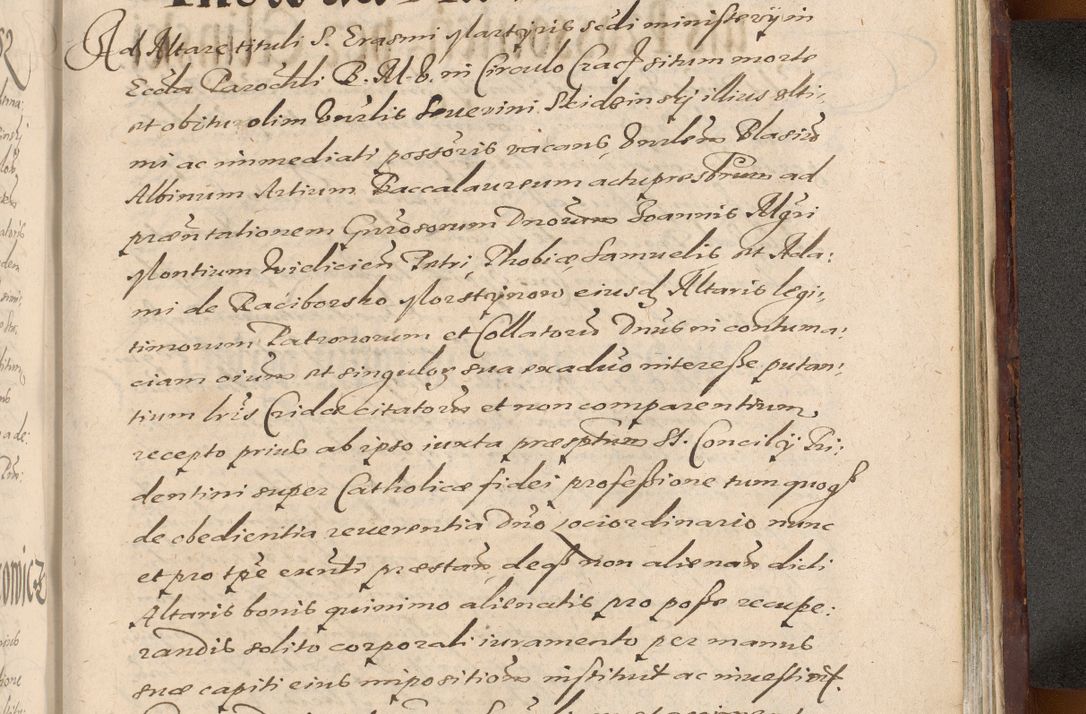 Ad Altare tituli S. Erasmi Martyris sedi ministerÿ in
Eccła Parochli B. M. V. in Circulo Crac. situm morte
et obitu olim Vnrlis Seuerini Skidzinskÿ illius vlti,
mi ac immediati possoris vacans, Vnrlem Blasiũ
Albinum Artium Baccalaureum actu presbrum ad
præntationem Gnrosorum Dnorum Joannis Mgri
Montium Vielicien Petri, Phobiæ, Samuelis et Ada:
mi de Raciborsko Morstÿnow eiusd Altaris legi,
timorum Patronorum et Collatorũ Dnus in contuma,
ciam oium et singulor sua exaduo interesse putan,
tium lris Cridæ citatorũ et non comparentium,
recepto prius ab ipso iuxta præsptum St. Concilÿ Tri,
dentini super Catholicæ fidei professione tum quoq
de obedientia reuerentia Dno loci ordinario nunc
et pro tpe exnti præstan, deq non alienan dicti
Altaris bonis quinimo alienatis pro posse recupe:
randis solito corporali iuramento per manus
suæ capiti eius impositionem instituit ac inuestiuit.